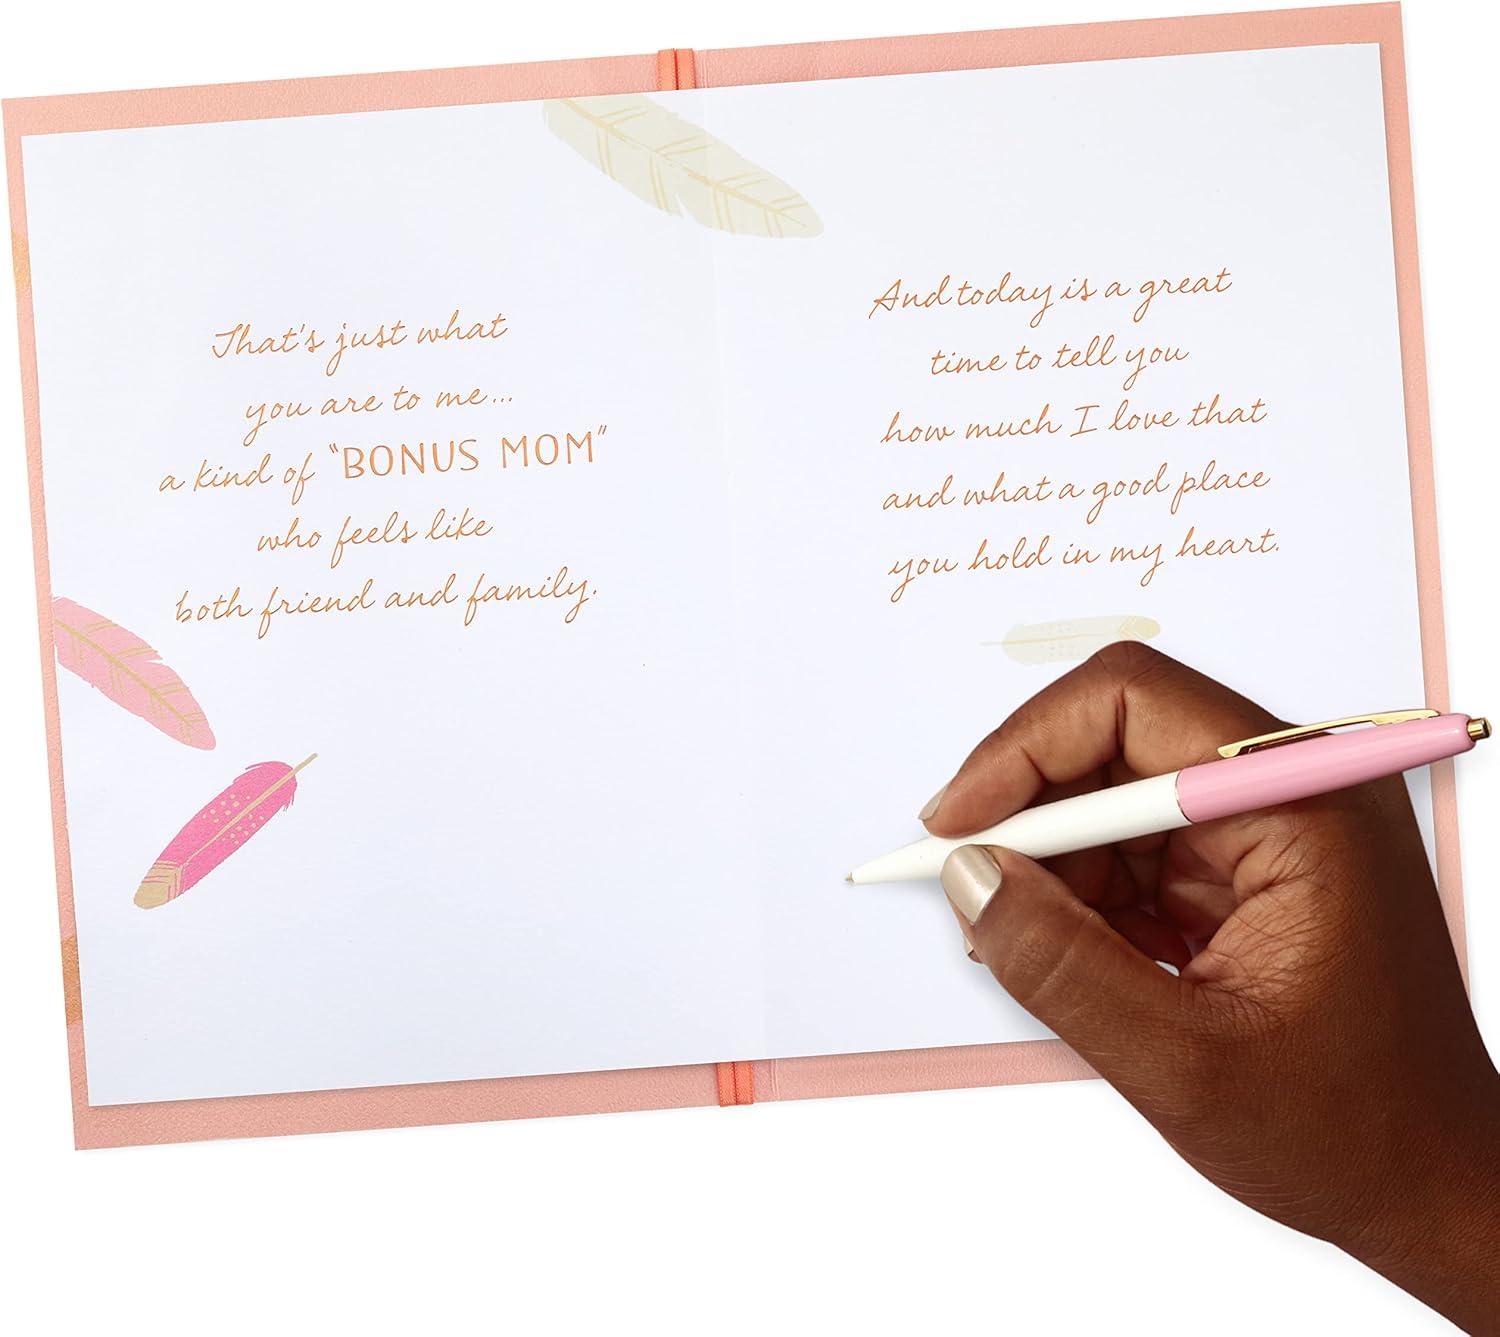 That's just what
you are to me...
a kind of "BONUS MOM"
who feels like
both friend and family.
And today is a great
time to tell you
how much I love that
and what a good place
you hold in my heart.